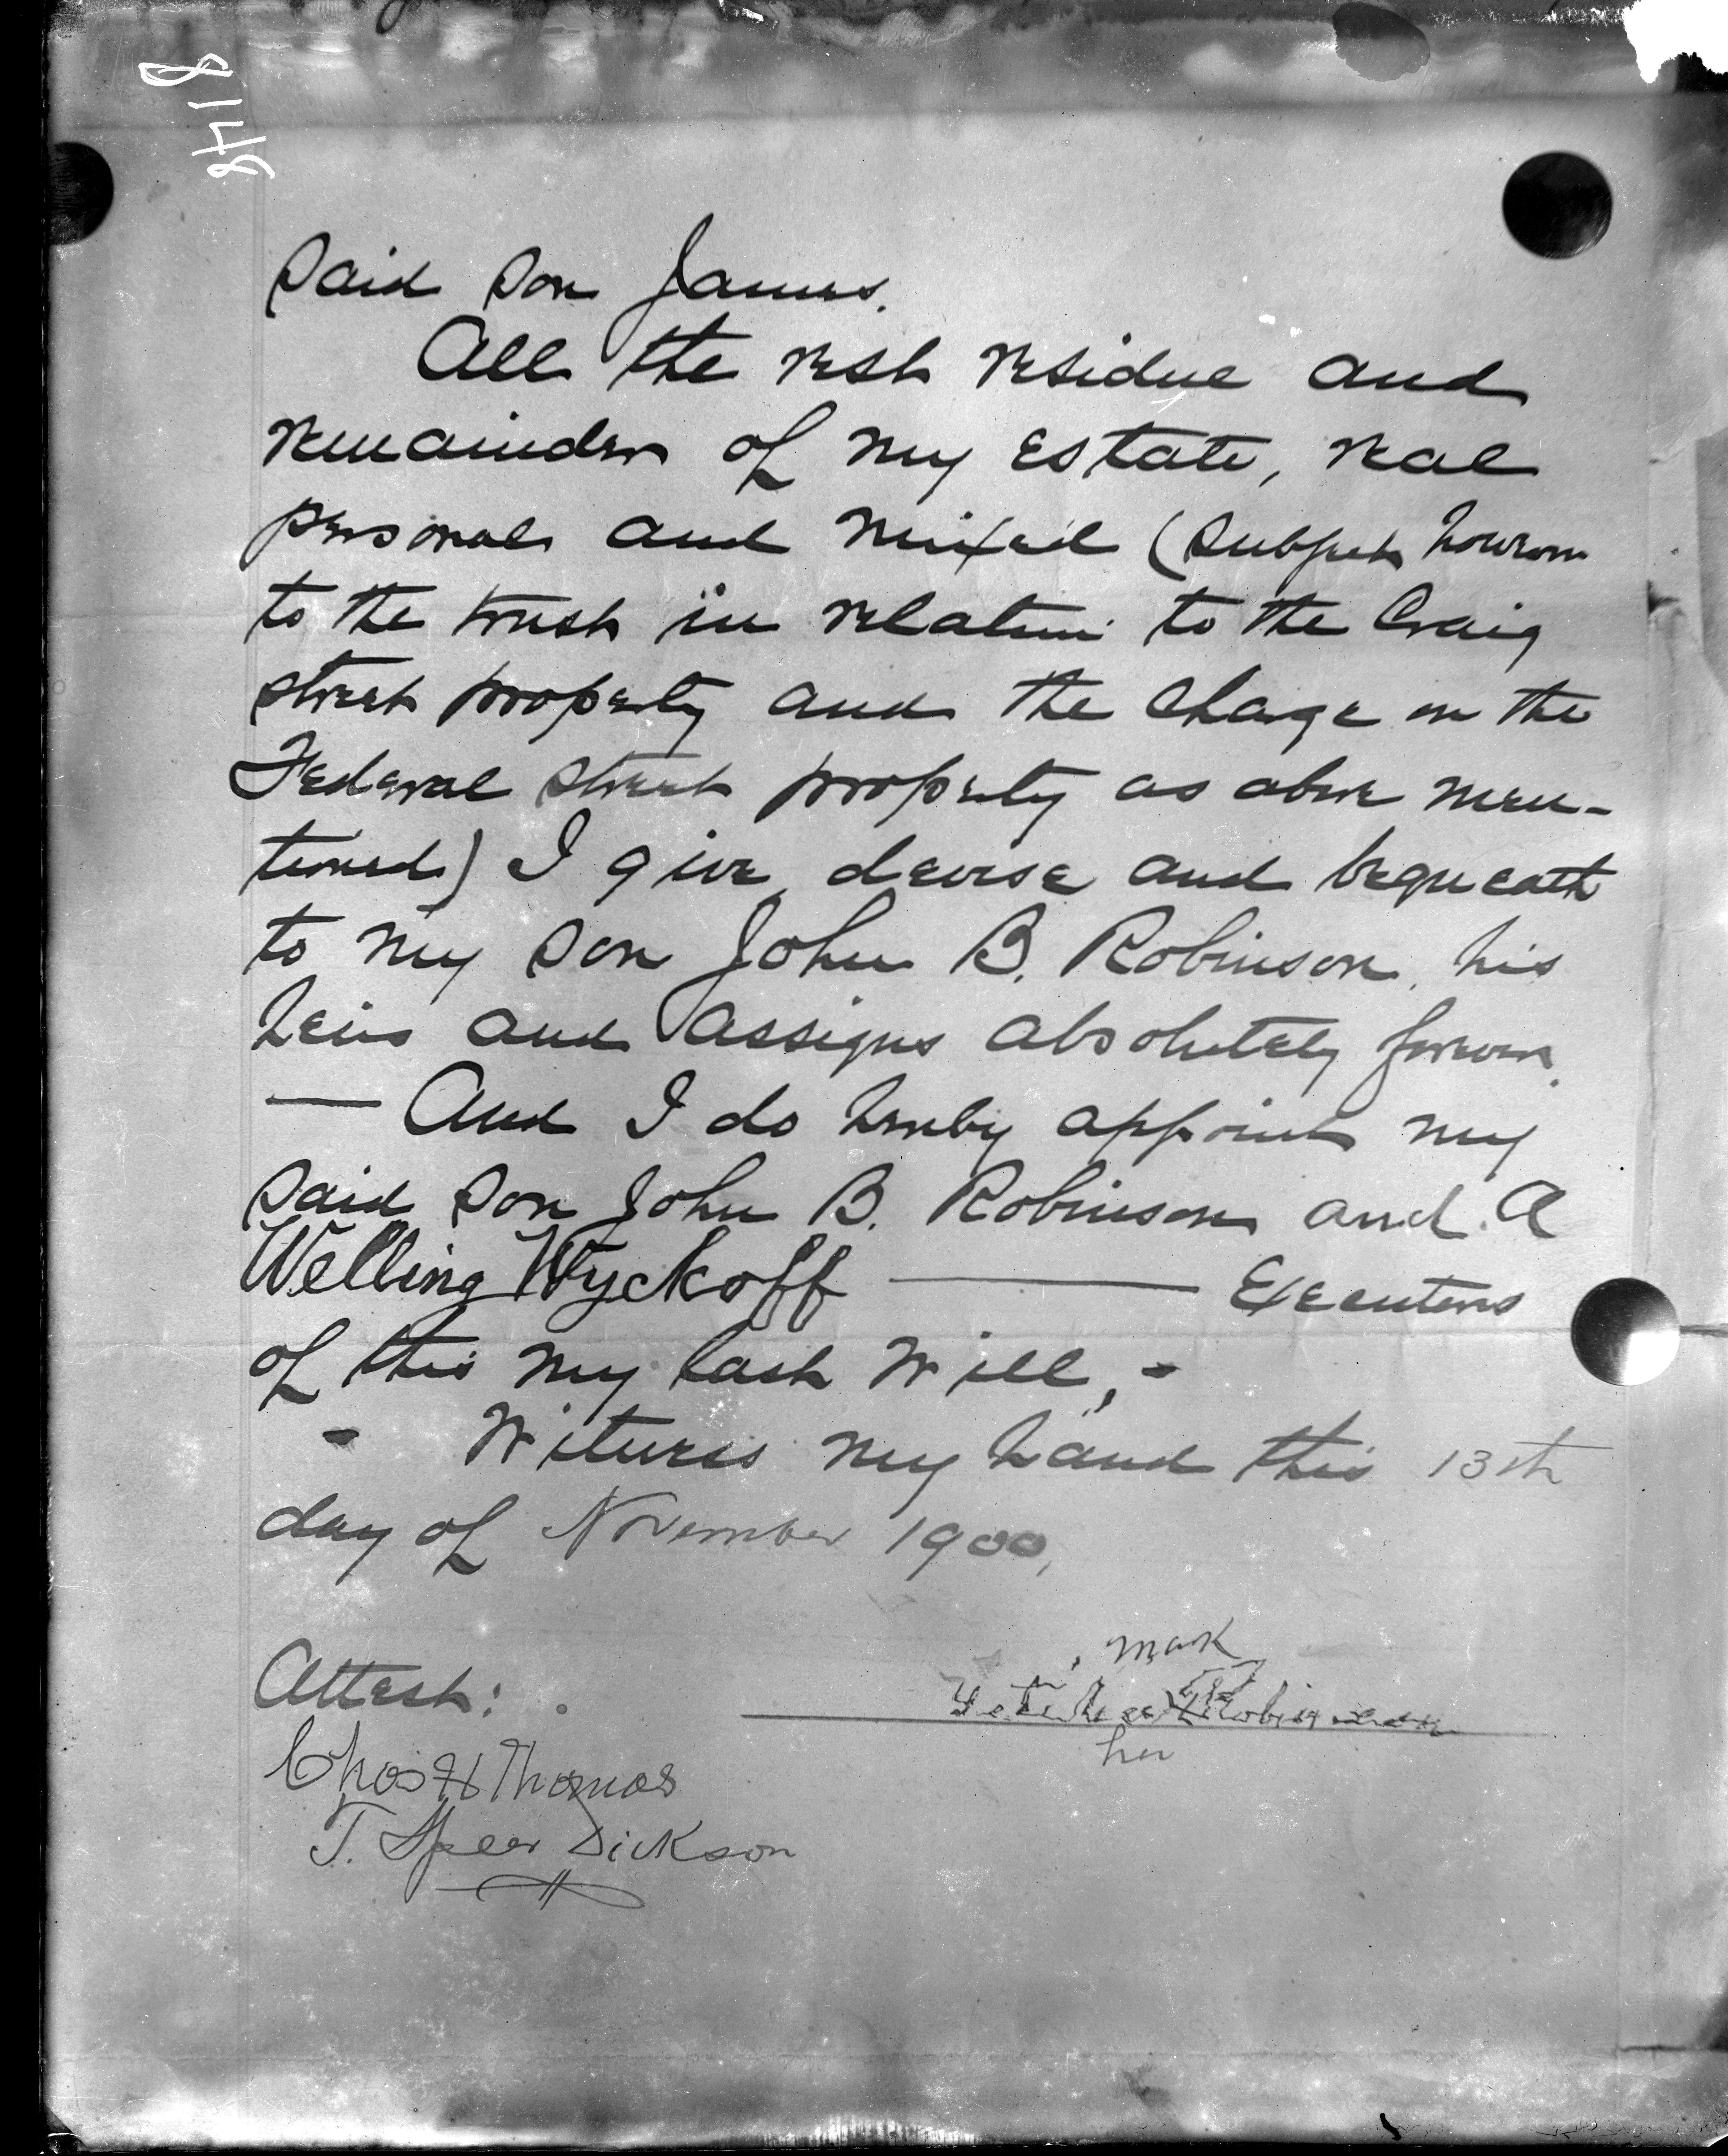 8148
said son James.
All the rest residue and
remainder of my Estate, real
personal and mixed (subject however
to the trust in relation to the Craig
street property and the charge on the
Federal street property as above men-
tioned) I give, devise and bequeath
to my son John B. Robinson, his
heirs and assigns absolutely forever.
— And I do hereby appoint my
said son John B. Robinson and A
Welling Wyckoff — Executors
of this my last Will, -
- Witness my hand this 13th
day of November 1900,
mark
Robinson
her
Attest:
Chas H Thomas
T. Speer Dickson